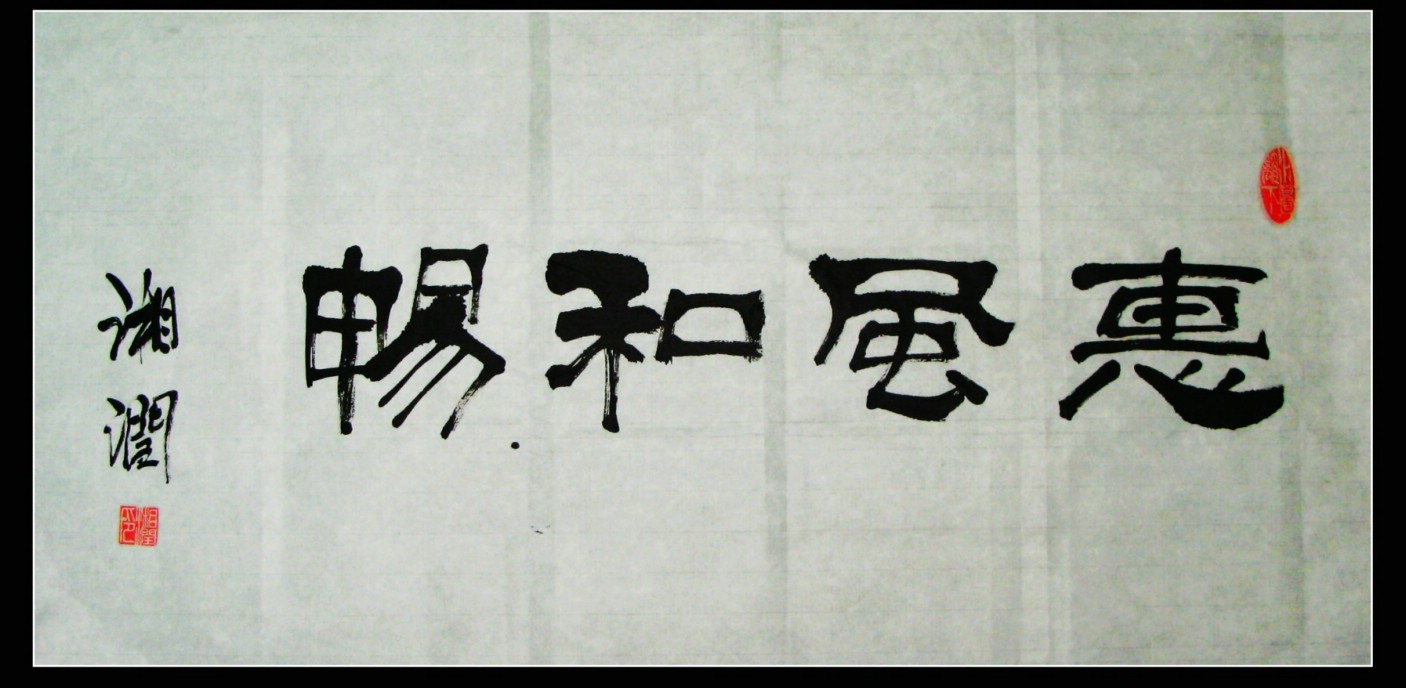 惠風和暢
湘潤